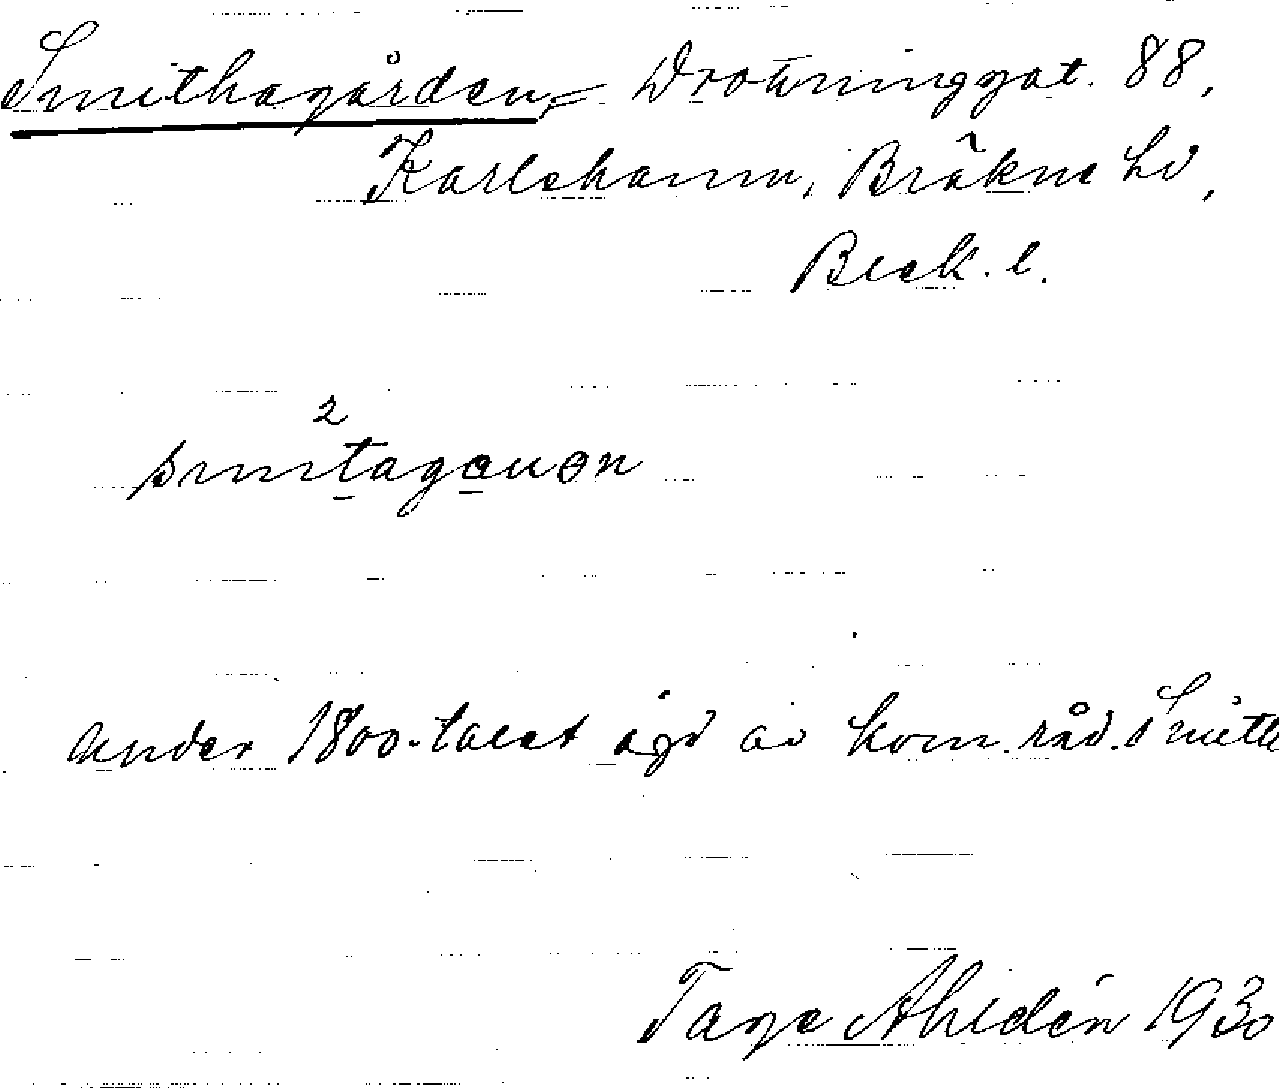 Smithagården, Drottninggat. 88,
Karlshamn, Bräkne hd,
Blek. l.
2
under 1800-talet ägd av kom.råd. Smith
Tage Ahldén 1930